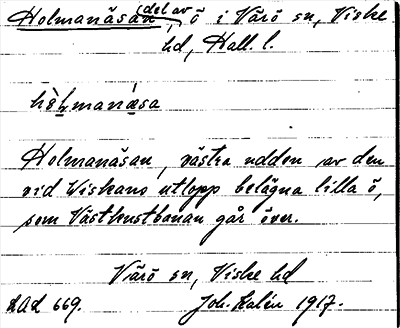 Holmanäsan (del av ö i Värö sn, Viske
hd, Hall. l.
Holmanäsan, västra udden av den
vid Wiskans utlopp belägna lilla ö,
som Västkustbanan går över.
Värö sn, Viske hd
KAL 669. Joh. Kalén 1917.